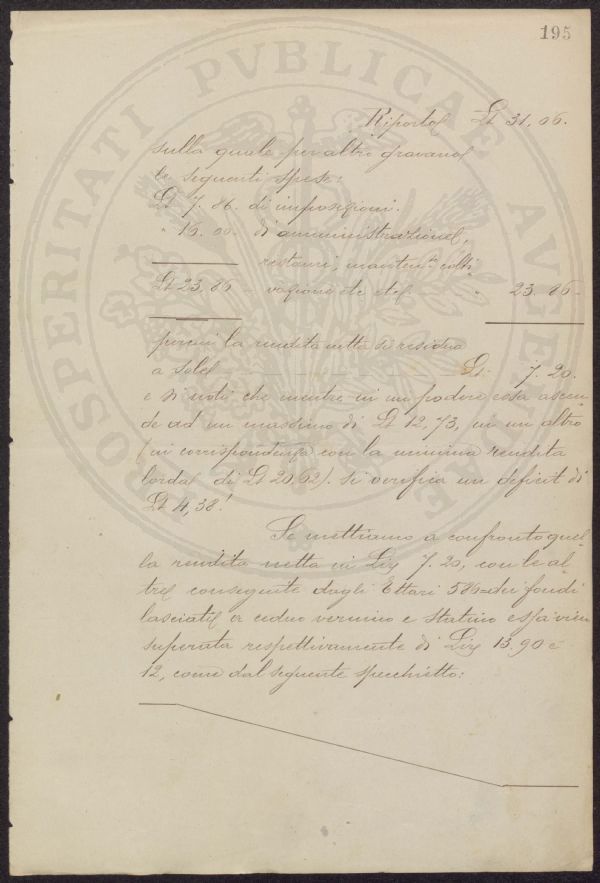 195
PROSPERITATI PVBLICAE AVGENDAE
Riporto Lt 31,06.
sulla quale per altro gravano
le seguenti spese:
Lt 7.86. di imposizioni.
" 16.00. d'amministrazione,
restauri, manten.ne colti-
Lt 23,86 - vazione etc etc. " 23.86-
perciò la rendita netta si residua
a sole Lt: 7.20.
e si noti che mentre in un podere essa ascen-
de ad un massimo di Lt 12,73, in un altro
(in corrispondenza con la minima rendita
lorda di Lt 20.02). si verifica un deficit di
Lt 4,38!
Se mettiamo a confronto quel-
la rendita netta in Lire 7.20, con le al-
tre conseguite dagli Ettari 586= dei fondi
lasciati a ceduo vernino e statino essa vien
superata respettivamente di Lire 13.90 e
12, come dal seguente specchietto: